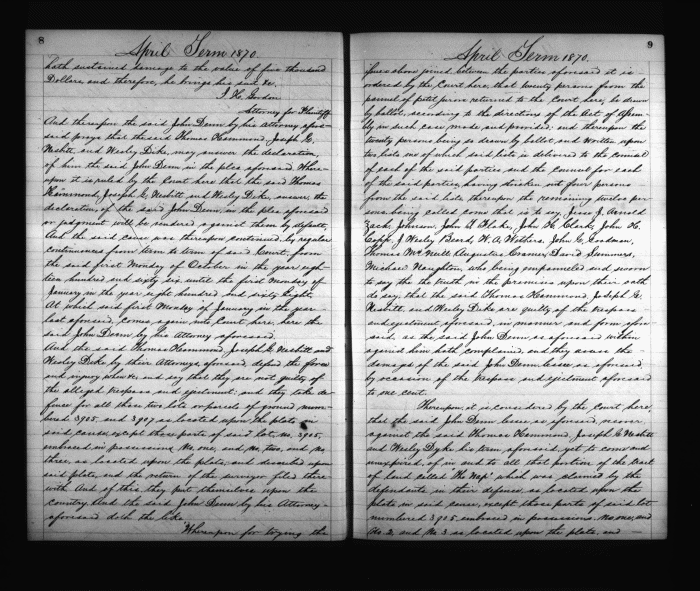 8
April Term 1870.
hath sustained damage to the value of five thousand
Dollars and therefore, he brings his suit &c.
J. H. Gordon
Attorney for Plaintiff
And thereupon the said John Denn by his attorney afore-
said prays that the said Thomas Hammond, Joseph G.
Nesbitt, and Wesley Dike, may answer the declaration,
of him the said John Denn in the plea aforesaid. Where-
upon it is ruled by the Court here that the said Thomas
Hammond, Joseph G. Nesbitt and Wesley Dike, answer the
declaration, of the said John Denn, in the plea aforesaid
or judgment will be rendered against them by default,
And the said cause was thereupon continued, by regular
continuances from term to term of said Court, from
the said first Monday of October in the year eigh-
teen hundred and sixty six until the first Monday of
January in the year eight hundred and sixty eight,
At which said first Monday of January in the year
last aforesaid, comes again, into Court here, here the
said John Denn by his Attorney aforesaid.
And the said Thomas Hammond, Joseph G. Nesbitt and
Wesley Dike by their Attorneys aforesaid, defend the force
and injury when &c and say that they are not guilty of
the alleged trespass and ejectment, and they take de-
fence for all those two lots or parcels of ground num-
bered 3905 and 3907 as located upon the plats in
said cause, except those parts of said lot no. 3905,
embraced in possessions, No. one, and no, two, and no,
three, as located upon the plats, and described upon
said plats, and the return of the surveyor filed there
with. And of this they put themselves upon the
country, And the said John Denn by his Attorney
aforesaid doth the like.
Whereupon for trying the
9
April Term 1870.
issues above joined between the parties aforesaid it is
ordered by the Court here, that twenty persons from the
pannel of petit jurors returned to the Court here, be drawn
by ballot, according to the directions of the Act of Assem-
bly in such case, made and provided, and thereupon the
twenty persons, being so drawn by ballot, and written upon
two lists, one of which said lists is delivered to the counsel
of each of the said parties, and the counsel for each
of the said parties, having stricken out four persons
from the said lists, thereupon the remaining twelve per-
sons being called come, that is to say, Jesse J. Arnold
Zack, Johnson, John H. Clark, John H.
J. Wesley Beard, W. A. Withers, John C. Goodman,
Thomas McNeill Augustus Cramer, David Summers,
Michael Naughton, who being empannelled and sworn
to say the the truth in the premises upon their oath
do say, that the said Thomas Hammond, Joseph G.
Nesbitt and Wesley Dike are guilty, of the trespass
and ejectment aforesaid, in manner and form afore-
said, as the said John Denn, as aforesaid within
against him hath complained, and they assess the
damages of the said John Denn lessee, as aforesaid,
by occasion of the trespass and ejectment aforesaid
to one cent.
Thereupon, it is considered by the Court here,
that the said John Denn lessee as aforesaid, recover
against the said Thomas Hammond, Joseph G. Nesbitt
and Wesley Dyke his term, aforesaid yet to come and
unexpired, of in and to all that portion of the tract
of land called "The Nap" which was claimed by the
defendants in their defence as located upon the
plats in said cause, except those parts of said lot
numbered 3905 embraced in possessions, no. one, and
No. 2, and No. 3 as located upon the plats, and